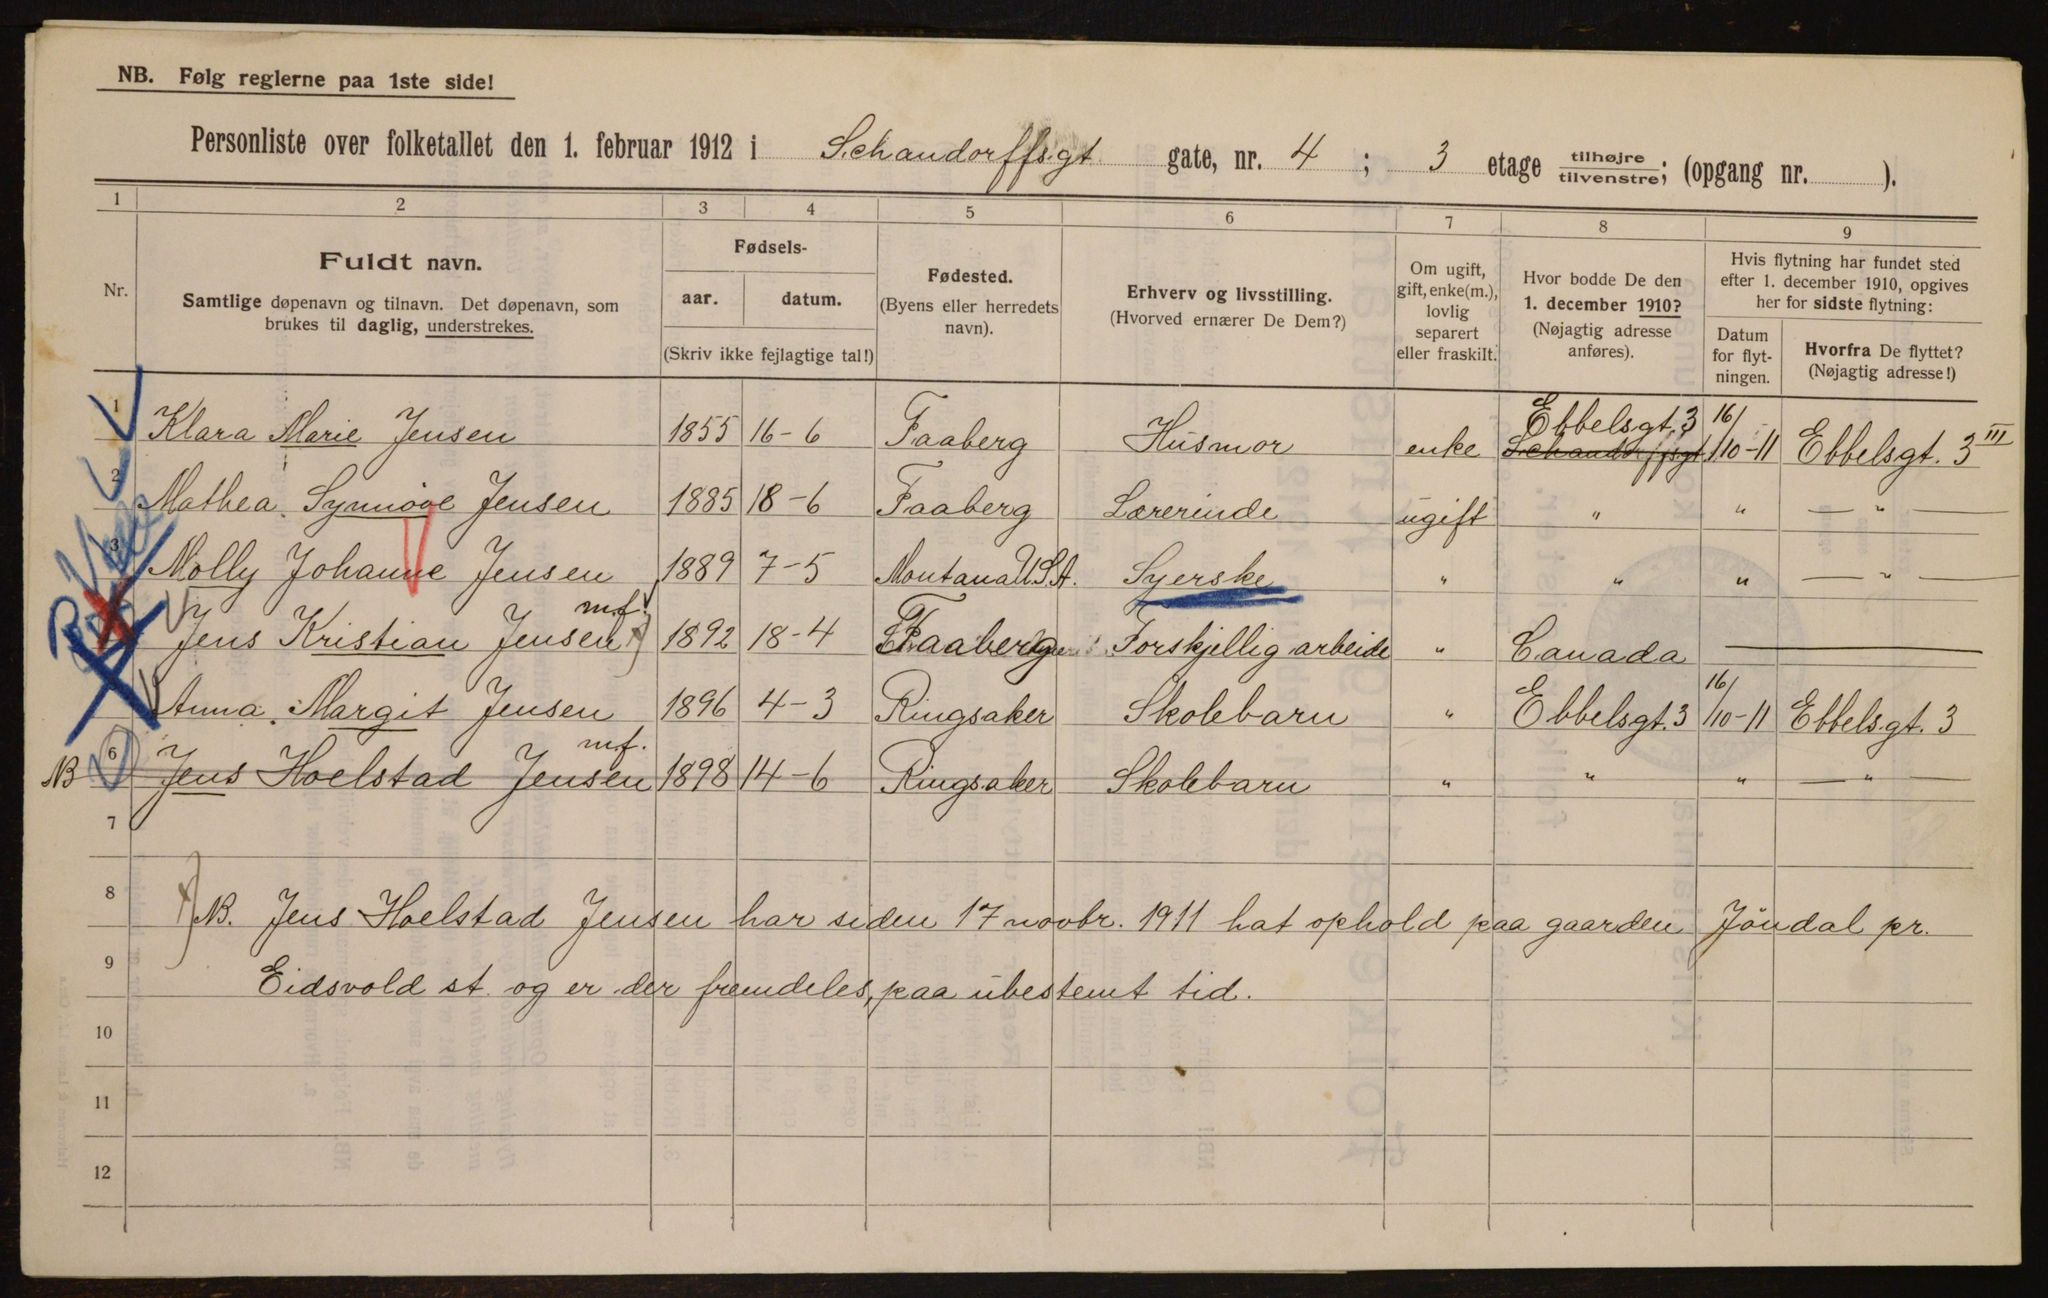 NB. Følg reglerne paa 1ste side!
Personliste over folketallet den 1. februar 1912 i Schandorffsgt gate, nr. 4 ; 3 etage tilhøjre/tilvenstre; (opgang nr. ).
1 2 3 4 5 6 7 8 9
Nr.
Fuldt navn.
Samtlige døpenavn og tilnavn. Det døpenavn, som
brukes til daglig, understrekes.
Fødsels-
aar. datum.
(Skriv ikke fejlagtige tal!)
Fødested.
(Byens eller herredets
navn).
Erhverv og livsstilling.
(Hvorved ernærer De Dem?)
Om ugift,
gift, enke(m.),
lovlig
separert
eller fraskilt.
Hvor bodde De den
1. december 1910?
(Nøjagtig adresse
anføres).
Hvis flytning har fundet sted
efter 1. december 1910, opgives
her for sidste flytning:
Datum
for flyt-
ningen.
Hvorfra De flyttet?
(Nøjagtig adresse!)
1 Klara Marie Jensen 1855 16-6 Faaberg Husmor enke Ebbelsgt. 3 Schandorffsgt 16/10-11 Ebbelsgt. 3 III
2 Mathea Synnøve Jensen 1885 18-6 Faaberg Lærerinde ugift " " — " —
3 Molly Johanne Jensen 1889 7-5 Montana U.S.A. Syerske " " " — " —
Jens Kristian Jensen m.f. 1892 18-4 Faaberg Forskjellig arbeide " Canada —
Anna Margit Jensen 1896 4-3 Ringsaker Skolebarn " Ebbelsgt. 3 16/10-11 Ebbelsgt. 3
NB 6 Jens Hoelstad Jensen m.f. 1898 14-6 Ringsaker Skolebarn " " " — " —
7
8 NB. Jens Hoelstad Jensen har siden 17 novbr. 1911 hat ophold paa gaarden Jøndal pr.
9 Eidsvold st. og er der fremdeles, paa ubestemt tid.
10
11
12